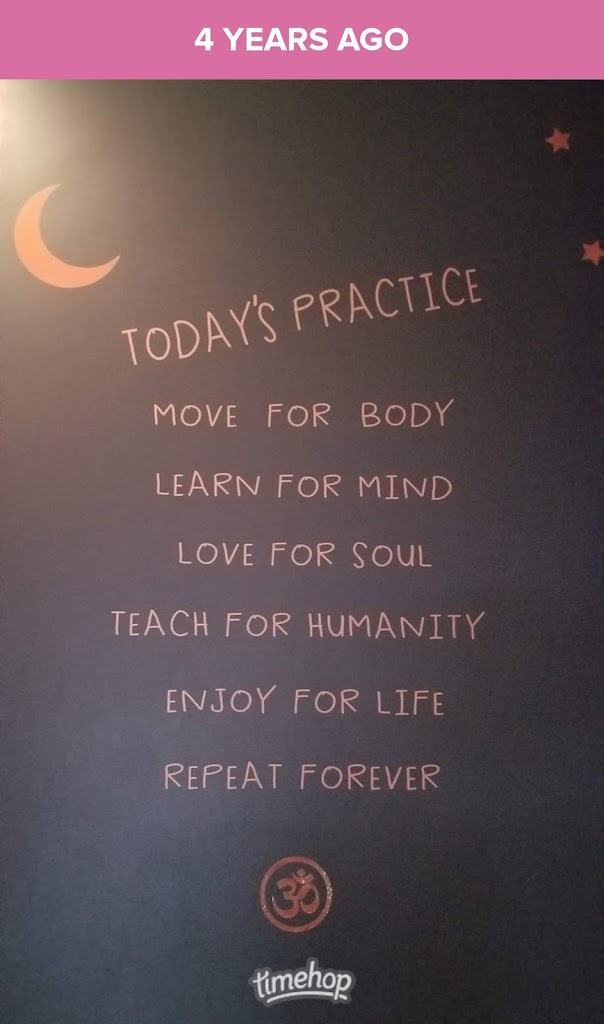 4 YEARS AGO
TODAY'S PRACTICE
MOVE FOR BODY
LEARN FOR MIND
LOVE FOR SOUL
TEACH FOR HUMANITY
ENJOY FOR LIFE
REPEAT FOREVER
ॐ
timehop